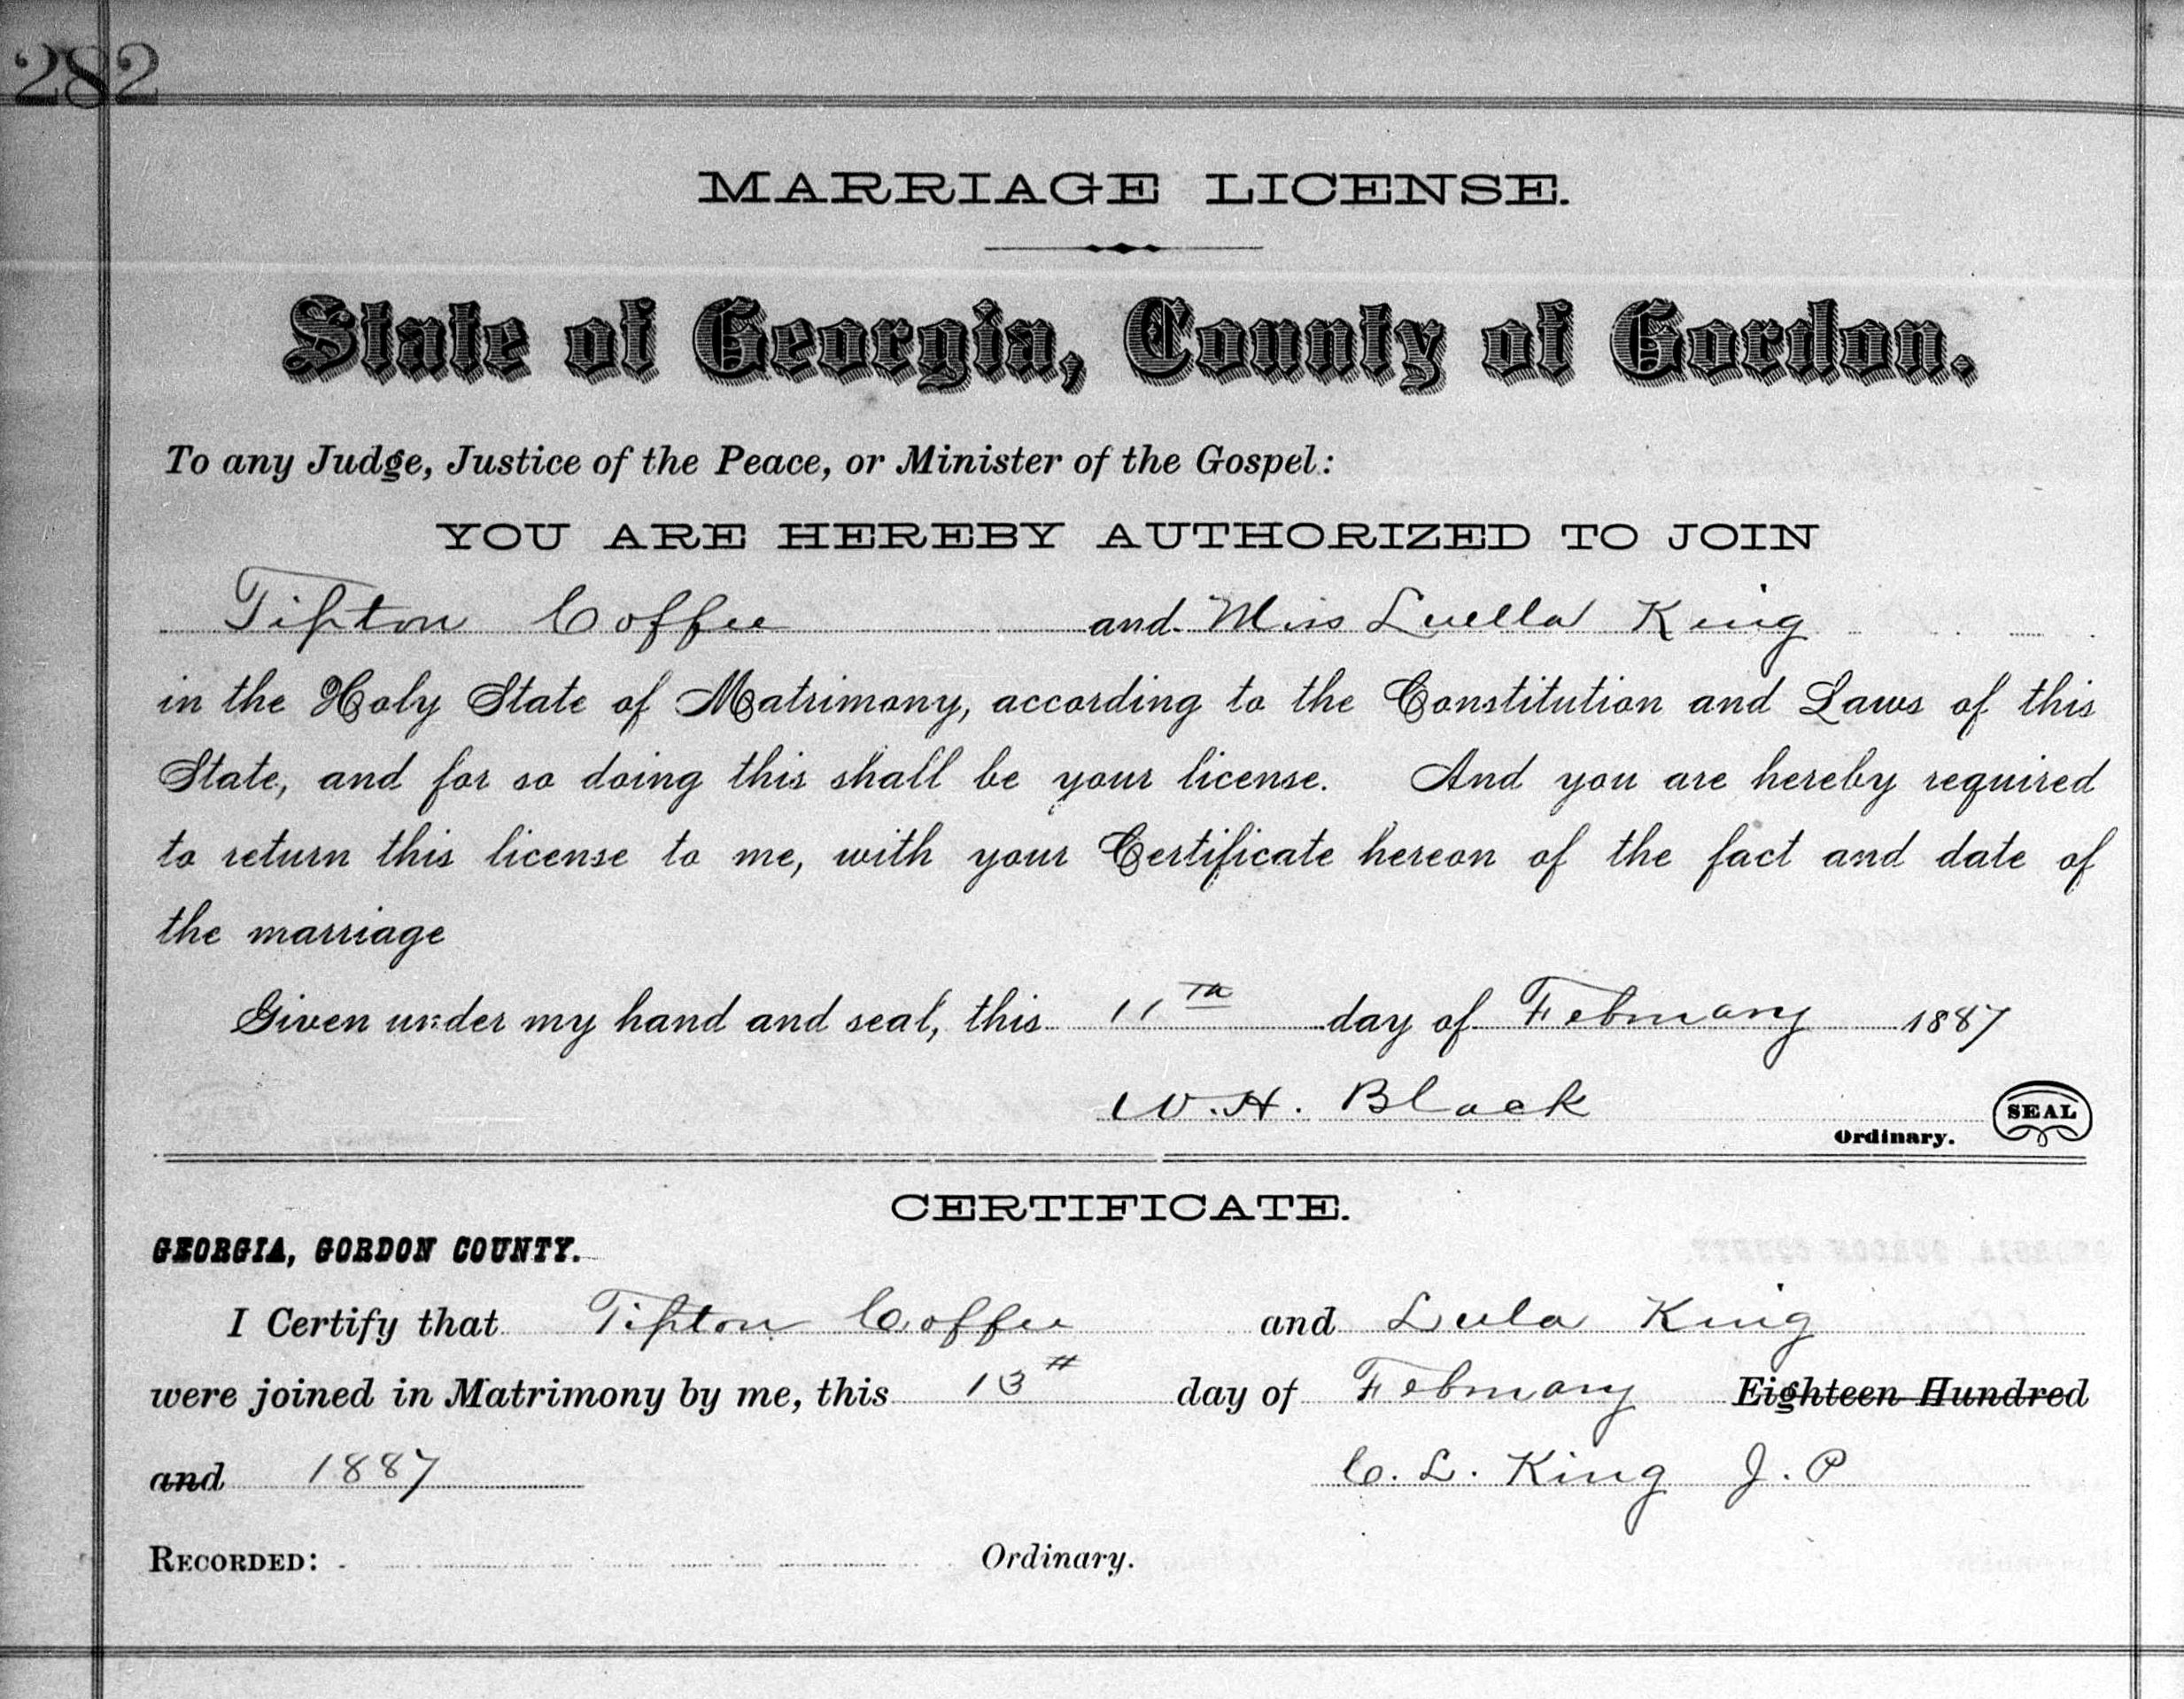 282
MARRIAGE LICENSE.
State of Georgia, County of Gordon.
To any Judge, Justice of the Peace, or Minister of the Gospel:
YOU ARE HEREBY AUTHORIZED TO JOIN
Tipton Coffee and Miss Luella King
in the Holy State of Matrimony, according to the Constitution and Laws of this
State, and for so doing this shall be your license. And you are hereby required
to return this license to me, with your Certificate hereon of the fact and date of
the marriage
Given under my hand and seal, this 11th day of February 1887
W. H. Black
Ordinary. SEAL
CERTIFICATE.
GEORGIA, GORDON COUNTY.
I Certify that Tipton Coffee and Lula King
were joined in Matrimony by me, this 13th day of February Eighteen Hundred
and 1887 C. L. King J. P
RECORDED: Ordinary.